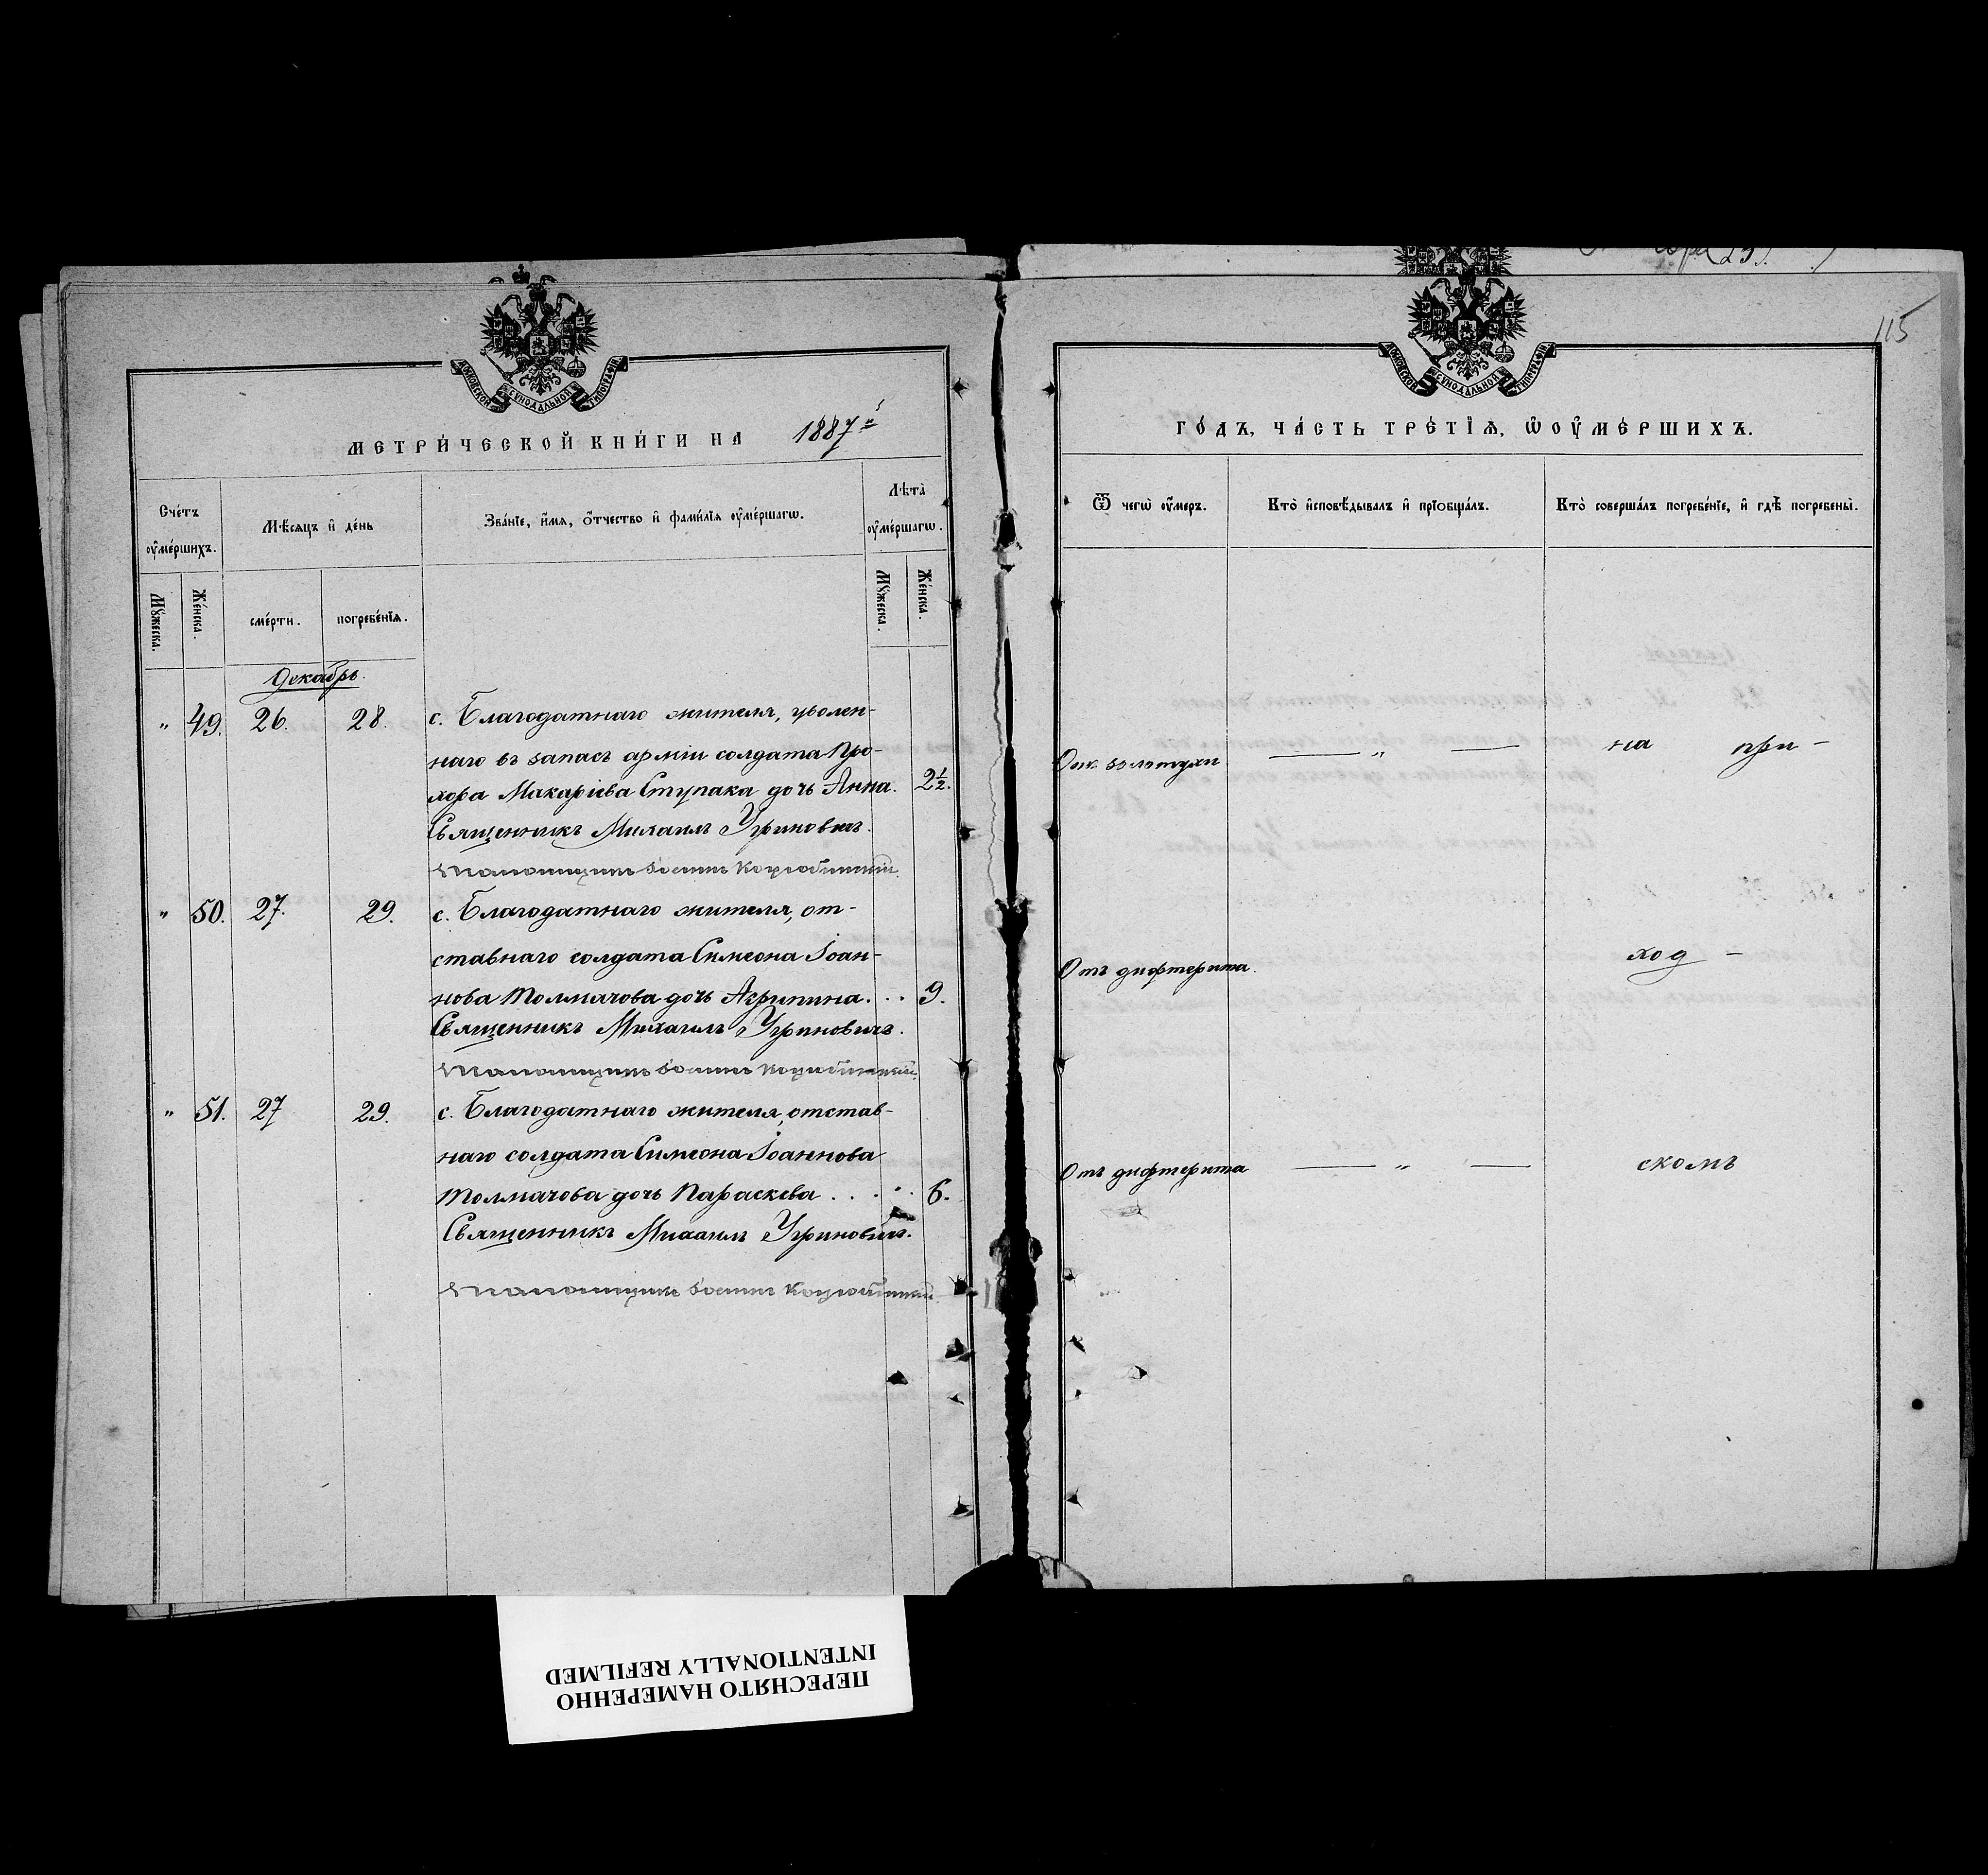 МОСКОВСКОЙ СѴНОДАЛЬНОЙ ТИПОГРАФІИ
МЕТРИ́ЧЕСКОЙ КНИ́ГИ НА 1887й
Сче́тъ оу҆ме́ршихъ.
Мѣ́сяцъ и҆ де́нь
Зва́нїе, и҆́мя, ѻ҆́тчество и҆ фами́лїя оу҆ме́ршагѡ.
Лѣ́та оу҆ме́ршагѡ.
Мꙋ́жеска.
Же́нска.
сме́рти.
погребе́нїѧ.
Мꙋ́жеска.
Же́нска.
Декабрь.
" 49. 26. 28. с. Благодатнаго жителя, уволен-
наго въ запасъ арміи солдата Про-
хора Макаріева Ступака дочь Анна. 2½.
Священникъ Михаилъ Угриновичъ.
" 50. 27. 29. с. Благодатнаго жителя, от-
ставнаго солдата Симеона Іоан-
нова Толмачова дочь Агрипина. . . 9.
Священникъ Михаилъ Угриновичъ.
" 51. 27 29. с. Благодатнаго жителя, отстав-
наго солдата Симеона Іоаннова
Толмачова дочь Параскева . . . . 6.
Священникъ Михаилъ Угриновичъ.
115
МОСКОВСКОЙ СѴНОДАЛЬНОЙ ТИПОГРАФІИ
ГО́ДЪ, ЧА́СТЬ ТРЕ́ТЇѦ, Ѡ҆ ОУ҆МЕ́РШИХЪ.
Ѿ чегѡ̀ оу҆́меръ.
Кто̀ и҆сповѣ́дывалъ и҆ прїобща́лъ.
Кто̀ соверша́лъ погребе́нїе, и҆ гдѣ̀ погребены̀.
золотухи — " — на при-
Отъ дифтерита. ход-
Отъ дифтерита — " — скомъ
ПЕРЕСНЯТО НАМЕРЕННО
INTENTIONALLY REFILMED